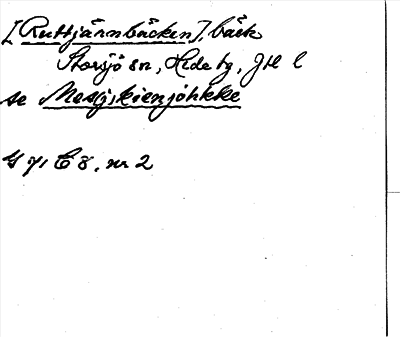 [Ruttjärnbäcken], bäck
Storsjö sn, Hede tg, Jtl l
se Messjkienjöhkke
G 71 C 8, nr 2